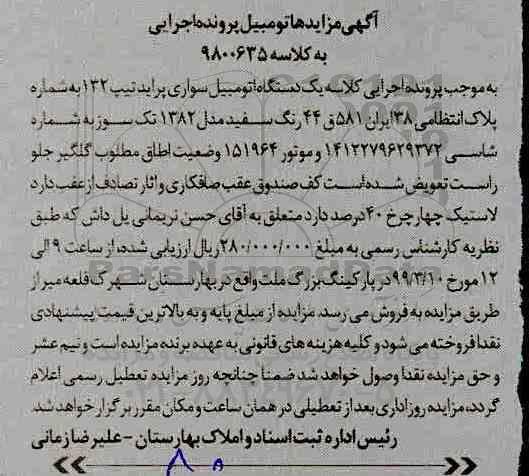 آگهی مزایده اتومبیل پرونده اجرایی
به کلاسه ۹۸۰۰۶۳۵
به موجب پرونده اجرایی کلاسه یک دستگاه اتومبیل سواری پراید تیپ ۱۳۲ به شماره
پلاک انتظامی ۳۸ ایران ۵۸۱ ق ۴۴ رنگ سفید مدل ۱۳۸۲ تک سوز به شماره
شاسی ۱۴۱۲۲۷۹۶۲۹۳۷۲ و موتور ۱۵۱۹۶۴ وضعیت اطاق مطلوب گلگیر جلو
راست تعویض شده است کف صندوق عقب صافکاری و اثار تصادف از عقب دارد
لاستیک چهار چرخ ۴۰ درصد دارد متعلق به آقای حسن نریمانی یل داش که طبق
نظریه کارشناس رسمی به مبلغ ۲۸۰/۰۰۰/۰۰۰ ریال ارزیابی شده، از ساعت ۹ الی
۱۲ مورخ ۹۹/۳/۱۰ در پارکینگ بزرگ ملت واقع در بهارستان شهرک قلعه میر از
طریق مزایده به فروش می رسد. مزایده از مبلغ پایه و به بالاترین قیمت پیشنهادی
نقدا فروخته می شود و کلیه هزینه های قانونی به عهده برنده مزایده است و نیم عشر
و حق مزایده نقدا وصول خواهد شد ضمنا چنانچه روز مزایده تعطیل رسمی اعلام
گردد، مزایده روز اداری بعد از تعطیلی در همان ساعت و مکان مقرر برگزار خواهد شد.
رئیس اداره ثبت اسناد و املاک بهارستان - علیرضا زمانی